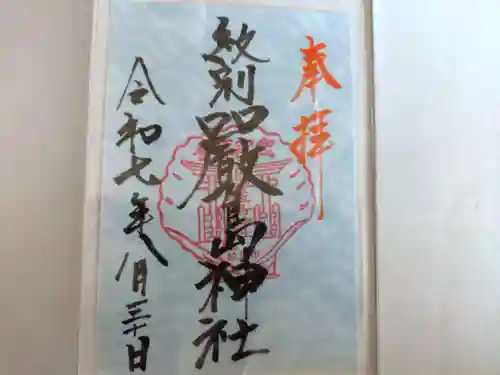 奉拝
紋別
厳島神社
令和七年八月三十日